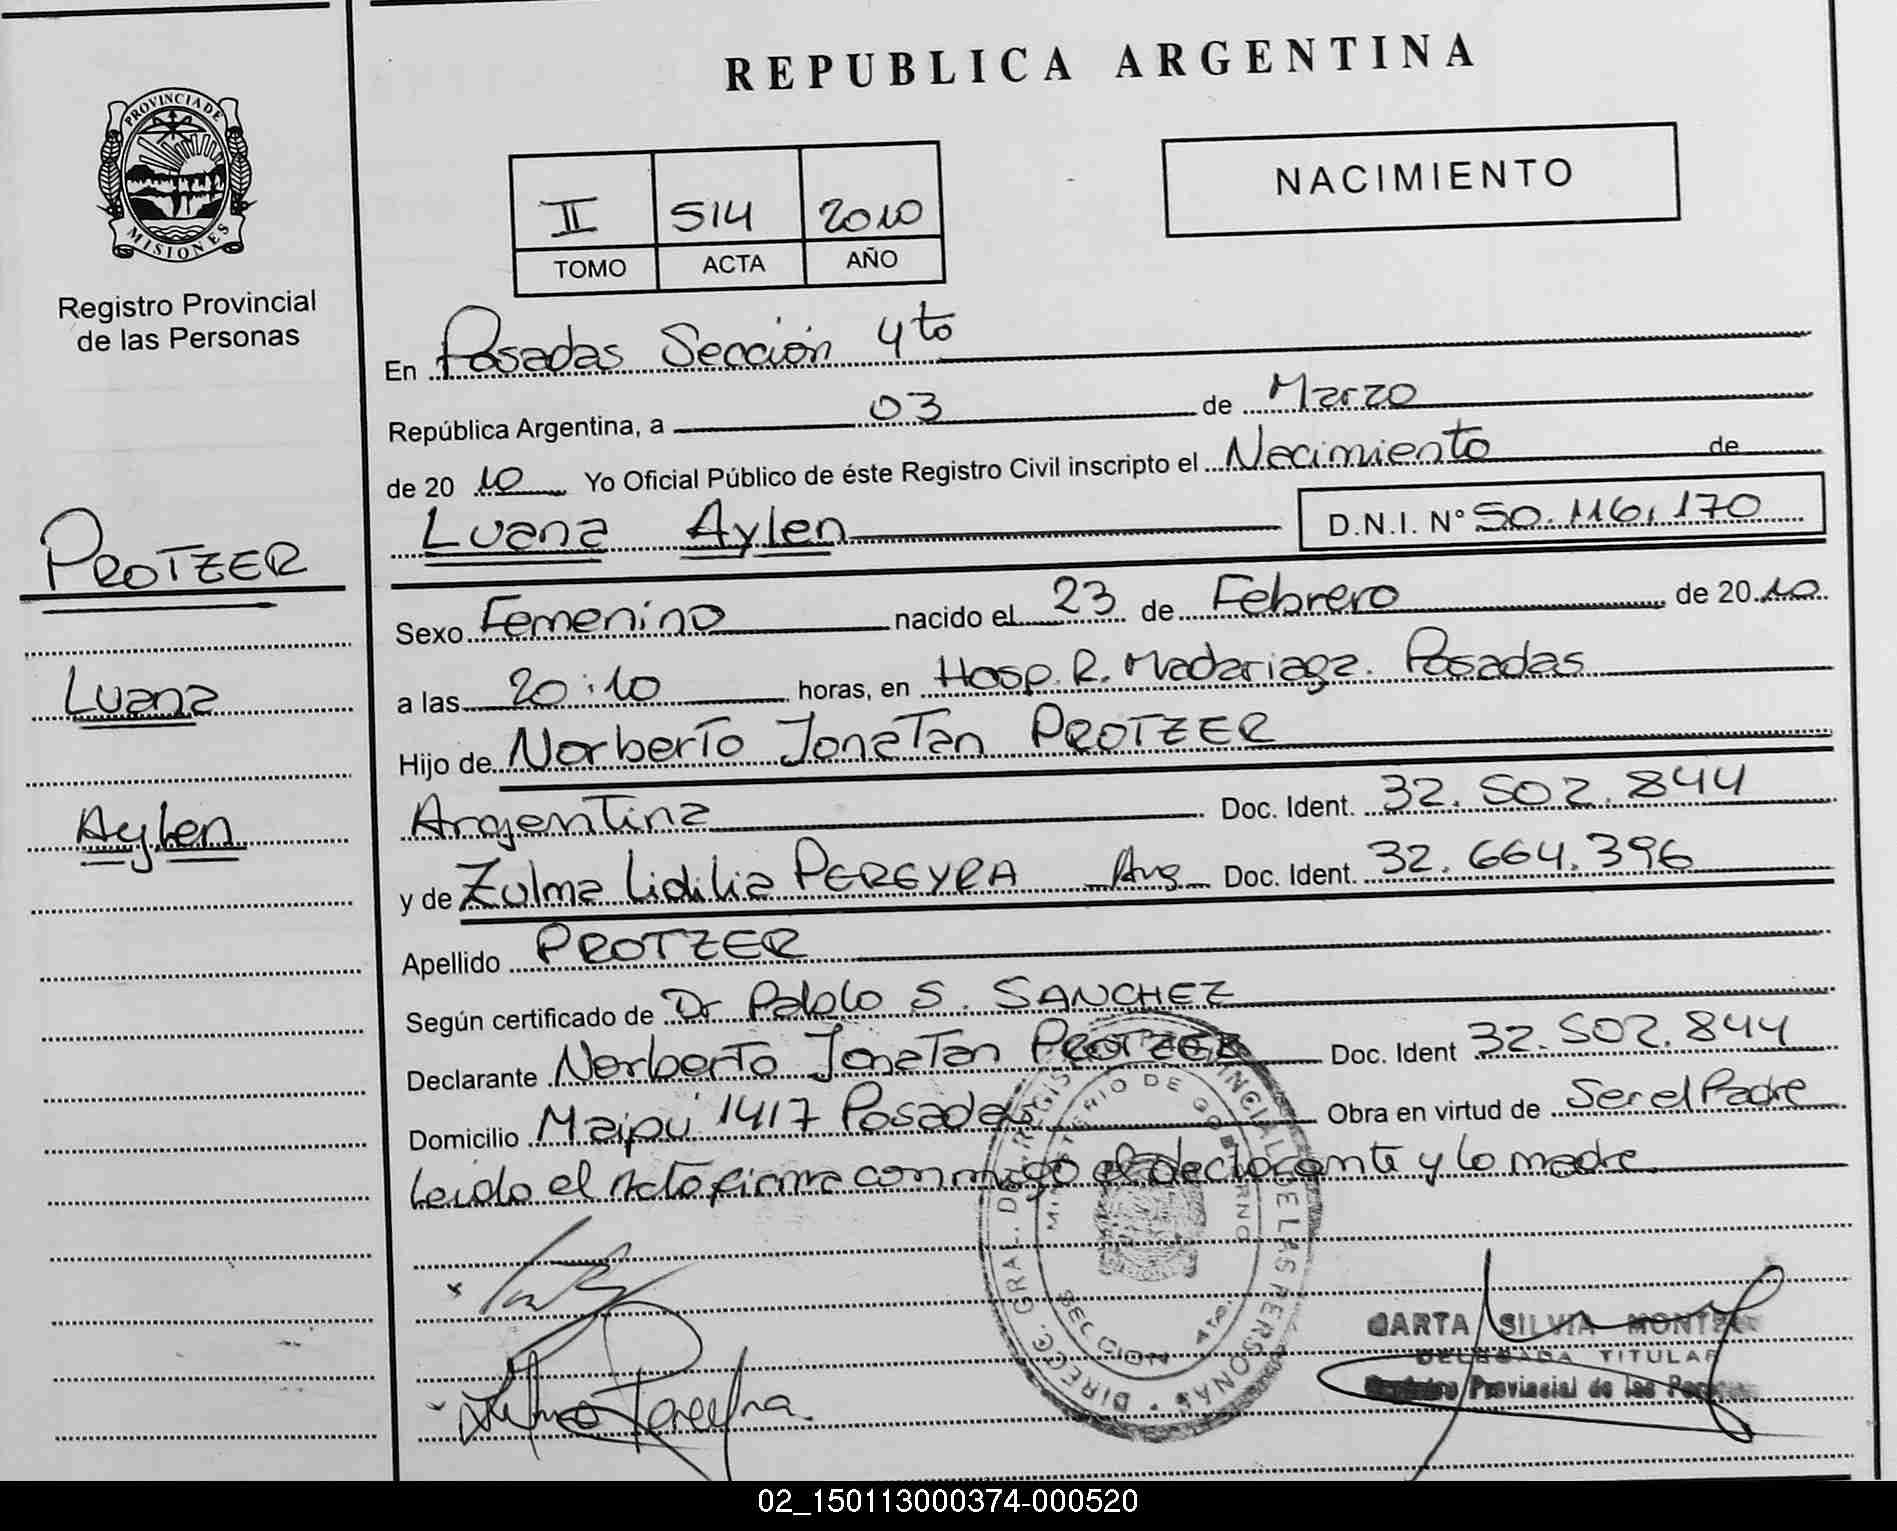 REPUBLICA ARGENTINA
PROVINCIA DE
MISIONES
Registro Provincial
de las Personas
NACIMIENTO
II 514 2010
TOMO ACTA AÑO
En Posadas Sección 4to
República Argentina, a 03 de Marzo
de 2010 Yo Oficial Público de éste Registro Civil inscripto el Nacimiento de
Luana Aylen D.N.I. N° 50.116.170
PROTZER
Luana
Aylen
Sexo Femenino nacido el 23 de Febrero de 2010
a las 20:10 horas, en Hosp. R. Madariaga. Posadas
Hijo de Norberto Jonatan PROTZER
Argentina Doc. Ident. 32.502.844
y de Zulma Lidilia PEREYRA Arg Doc. Ident. 32.664.396
Apellido PROTZER
Según certificado de Dr Pablo S. SANCHEZ
Declarante Norberto Jonatan PROTZER Doc. Ident 32.502.844
Domicilio Maipú 1417 Posadas Obra en virtud de Ser el Padre
Leido el Acto firma conmigo el declarante y la madre
DIRECC. GRAL. DEL REGIS PROVINCIAL DE LAS PERSONAS
MINISTERIO DE GOBIERNO
SECCION 4ta.
Pereyra
SILVIA
DELEGADA TITULAR
Provincial de las
02_150113000374-000520